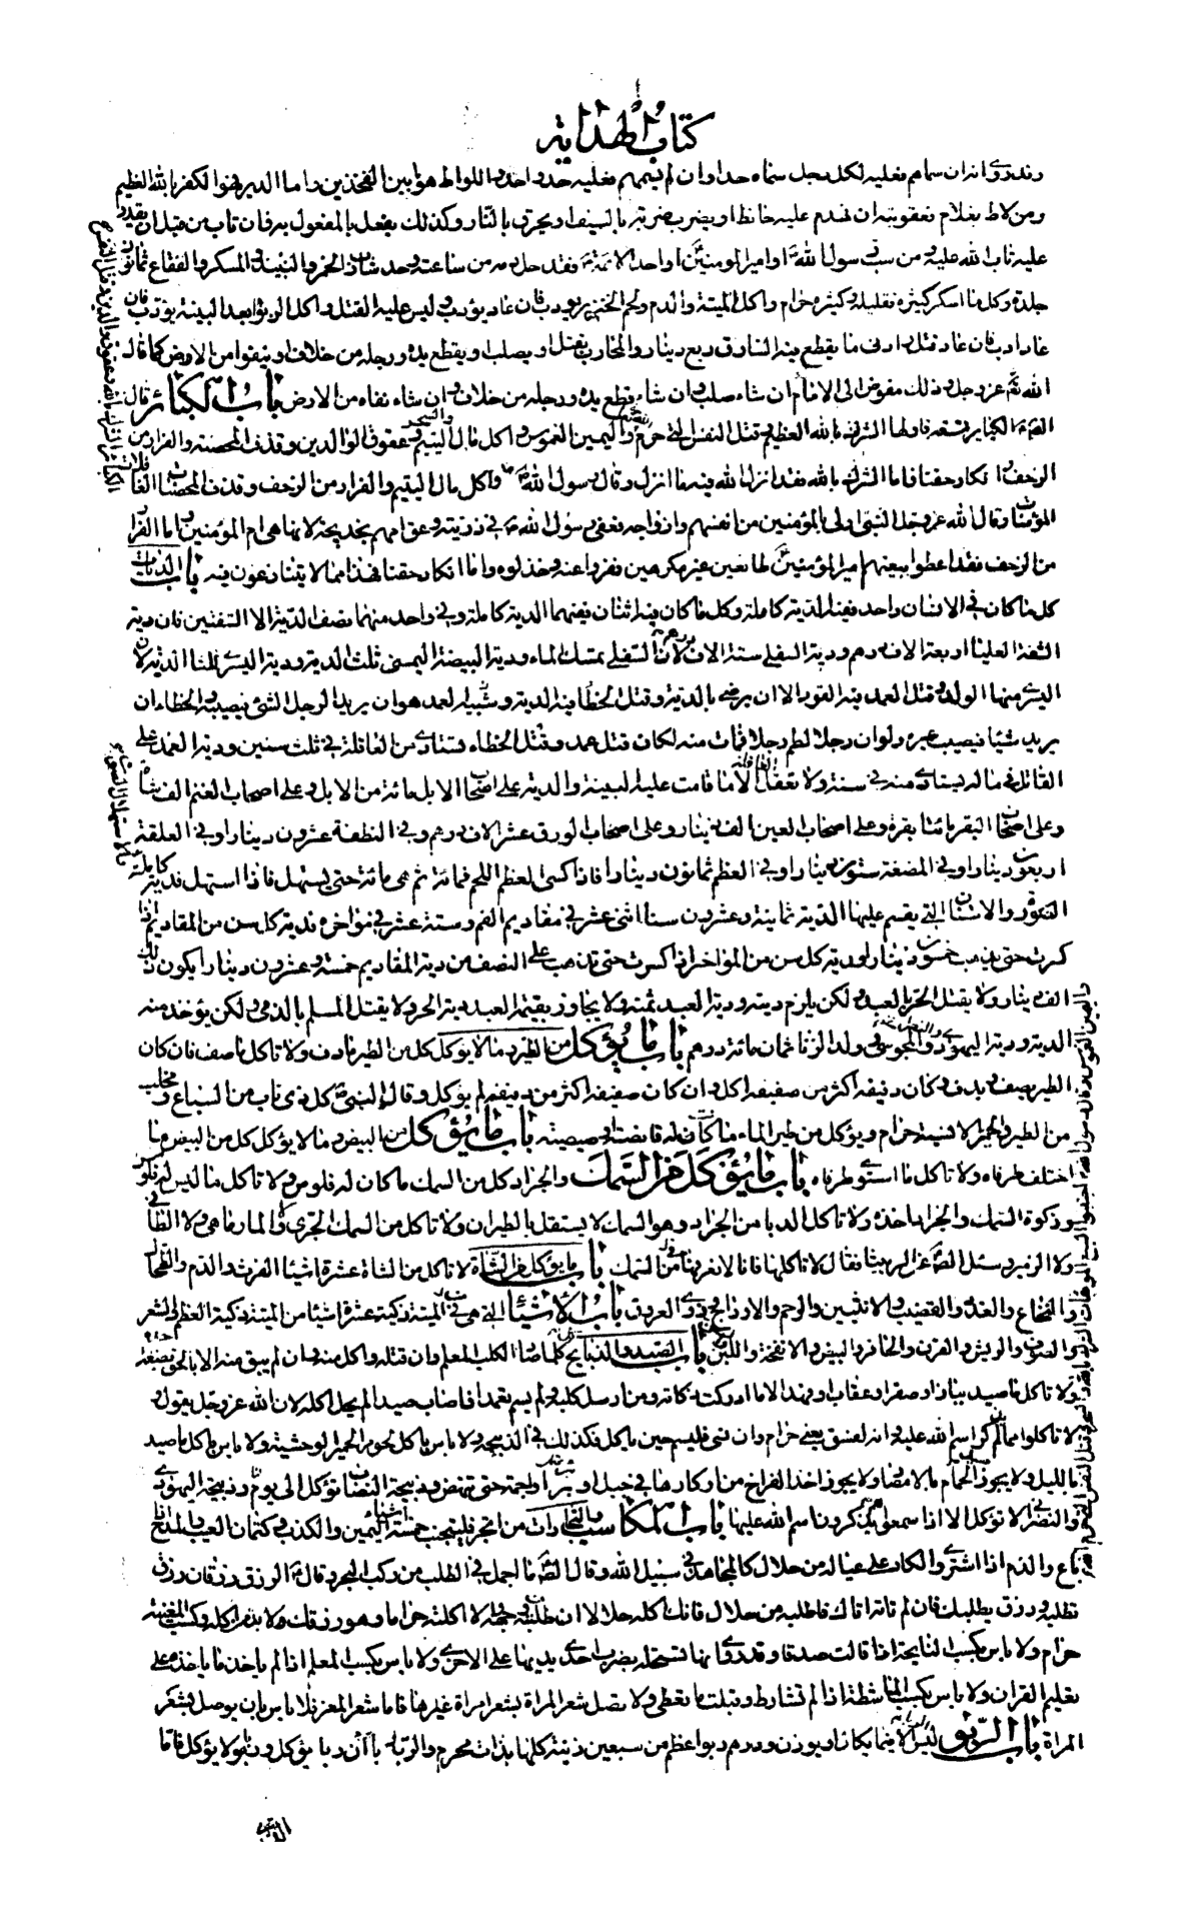 كتاب الهداية
وقد روي انه ان سماهم فعليه لكل رجل سماه حد وان لم يسمهم فعليه حد واحد واللواط هو ما بين الفخذين واما الدبر فهو الكفر بالله العظيم
ومن لاط بغلام فعقوبته ان يهدم عليه حائط او يضرب ضربة بالسيف او يحرق بالنار وكذلك يفعل بالمفعول به فان تاب من قبل ان يقدر
عليه تاب الله عليه ومن سب رسول الله او امير المؤمنين او احد الائمة فقد حل دمه من ساعته وحد شارب الخمر والنبيذ المسكر والفقاع ثمانون
جلدة وكل ما اسكر كثيره فقليله وكثيره حرام واكل الميتة والدم ولحم الخنزير يؤدب فان عاد يؤدب وليس عليه القتل واكل الربوا بعد البينة يؤدب فان
عاد ادب فان عاد قتل وادنى ما يقطع فيه السارق ربع دينار والمحارب يقتل او يصلب او يقطع يده ورجله من خلاف او ينفوا من الارض كما قال
الله عز وجل وذلك مفوض الى الامام ان شاء صلب وان شاء قطع يده ورجله من خلاف وان شاء نفاه من الارض باب الكبائر قال
الكبائر سبعة فاولها الشرك بالله العظيم وقتل النفس التي حرم الله واليمين الغموس واكل مال اليتيم وعقوق الوالدين وقذف المحصنة والفرار من
الزحف وانكار حقنا فاما الشرك بالله فقد انزل الله فيه ما انزل وقال رسول الله واكل مال اليتيم والفرار من الزحف وقذف المحصنات الغافلات
المؤمنات وقال الله عز وجل النبي اولى بالمؤمنين من انفسهم وازواجه فعقوا رسول الله في ذريته وعق امهم بخديجة لانها هي ام المؤمنين واما الفرار
من الزحف فقد اعطوا بيعتهم امير المؤمنين طائعين غير مكرهين ففروا عنه وخذلوه واما انكار حقنا فهذا مما لا يتنازعون فيه باب الديات
كل ما كان في الانسان واحد ففيه الدية كاملة وكل ما كان فيه اثنان ففيهما الدية كاملة وفي واحد منهما نصف الدية الا الشفتين فان دية
الشفة العليا اربعة الاف درهم ودية السفلى ستة الاف لان السفلى تمسك الماء ودية البيضة اليمنى ثلث الدية ودية اليسرى ثلثا الدية لان
اليسرى منها الولد وقتل العمد فيه القود الا ان يرضى بالدية وقتل الخطأ فيه الدية وشبيه العمد هو ان يريد الرجل الشئ فيصيبه والخطاء ان
يريد شيئا فيصيب غيره ولو ان رجلا لطم رجلا فمات منه لكان قتل عمد وقتل الخطاء تستادى من العاقلة في ثلث سنين ودية العمد على
القاتل في ماله يستادى منه في سنة ولا تعقل العاقلة الا ما قامت عليه البينة والدية على اصحاب الابل مائة من الابل وعلى اصحاب الغنم الف شاة
وعلى اصحاب البقر مائتا بقرة وعلى اصحاب العين الف دينار وعلى اصحاب الورق عشر الاف درهم وفي النطفة عشرون دينارا وفي العلقة
اربعون دينارا وفي المضغة ستون دينارا وفي العظم ثمانون دينارا فاذا كسى العظم اللحم فمائة ثم هي مائة حتى يستهل فاذا استهل فدية كاملة
والاسنان التي يقسم عليها الدية ثمانية وعشرون سنا اثنى عشر في مقاديم الفم وستة عشر في مواخره فدية كل سن من المقاديم اذا
كسرت حتى يذهب خمسون دينارا ودية كل سن من المواخر اذا كسرت حتى تذهب على النصف من دية المقاديم خمسة وعشرون دينارا يكون ذلك
الف دينار ولا يقتل الحر بالعبد ولكن يلزم ديته ودية العبد ثمنه ولا يجاوز بقيمة العبد دية الحر ولا يقتل المسلم بالذمي ولكن يؤخذ منه
الدية ودية اليهودي والمجوسي وولد الزنا ثمان مائة درهم باب ما يؤكل من الطير وما لا يؤكل كل من الطير ما دف ولا تاكل ما صف فان كان
الطير يصف ويدف وكان دفيفه اكثر من صفيفه اكل وان كان صفيفه اكثر من دفيفه لم يؤكل وقال النبي كل ذي ناب من السباع ومخلب
من الطير والحمير الانسية حرام ويؤكل من طير الماء ما كانت له قانصة او صيصية باب ما يؤكل من البيض وما لا يؤكل كل من البيض ما
اختلف طرفاه ولا تاكل ما استوى طرفاه باب ما يؤكل من السمك والجراد كل من السمك ما كان له فلوس ولا تاكل ما ليس له فلوس
وذكوة السمك والجراد اخذه ولا تاكل الدبا من الجراد وهو الذي لا يستقل بالطيران ولا تاكل من السمك الجري ولا المارماهي ولا الطافي
ولا الزمير وسئل عن الربيثا فقال لا تاكلها فانا لا نعرفها من السمك باب ما يؤكل من الشاة لا تاكل من الشاة عشرة اشياء الفرث والدم والطحال
والنخاع والغدد والقضيب والانثيين والرحم والحياء والاوداج باب الاشياء التي هي من الميتة ذكية عشرة اشياء من الميتة ذكية العظم والشعر
والصوف والريش والقرن والحافر والبيض والانفحة واللبن والسن باب الصيد والذبايح كل ما صاد الكلب المعلم وان قتله واكل منه وان لم يبق منه الا
ولا تاكل ما صيد بباز او صقر او عقاب او فهد الا ما ادركت ذكاته ومن ارسل كلبه ولم يسم تعمدا فاصاب صيدا لم يحل اكله لان الله عز وجل يقول
ولا تاكلوا مما لم يذكر اسم الله عليه وانه لفسق يعني حرام وان نسي فليسم حين ياكل وكذلك في الذبيحة ولا باس باكل لحوم الحمير الوحشية ولا باس باكل ما صيد
بالليل ولا يجوز اخذ الفراخ من اوكارها في جبل او اجمة حتى تنهض وذبيحة اليهودي
والنصراني لا تؤكل الا اذا سمعوهم يذكرون اسم الله عليها باب المكاسب والتجارات من اتجر فليجتنب خمسة اشياء اليمين والكذب وكتمان العيب والمدح اذا
باع والذم اذا اشترى والكاد على عياله من حلال كالمجاهد في سبيل الله وقال ما اجمل في الطلب من ركب البحر وقال الرزق رزقان رزق
تطلبه ورزق يطلبك فان لم تاته اتاك فاطلبه من حلال فانك اكلته حلالا ان طلبته من وجهه والا اكلته حراما وهو رزقك ولا بد من اكله وكسب المغنية
حرام ولا باس بكسب النايحة اذا قالت صدقا وقد روي انها تستحله بضرب احدى يديها على الاخرى ولا باس بكسب المعلم اذا لم ياخذ ما ياخذ على
تعليم القران ولا باس بكسب الماشطة اذا لم تشارط وقبلت ما تعطى ولا تصل شعر المراة بشعر امراة غيرها فاما شعر المعز فلا باس بان يوصل بشعر
المراة باب الربوا ليس الربوا الا فيما يكال او يوزن ودرهم ربوا اعظم من سبعين زنية كلها بذات محرم والربا رباءان ربا يؤكل وربا لا يؤكل فاما